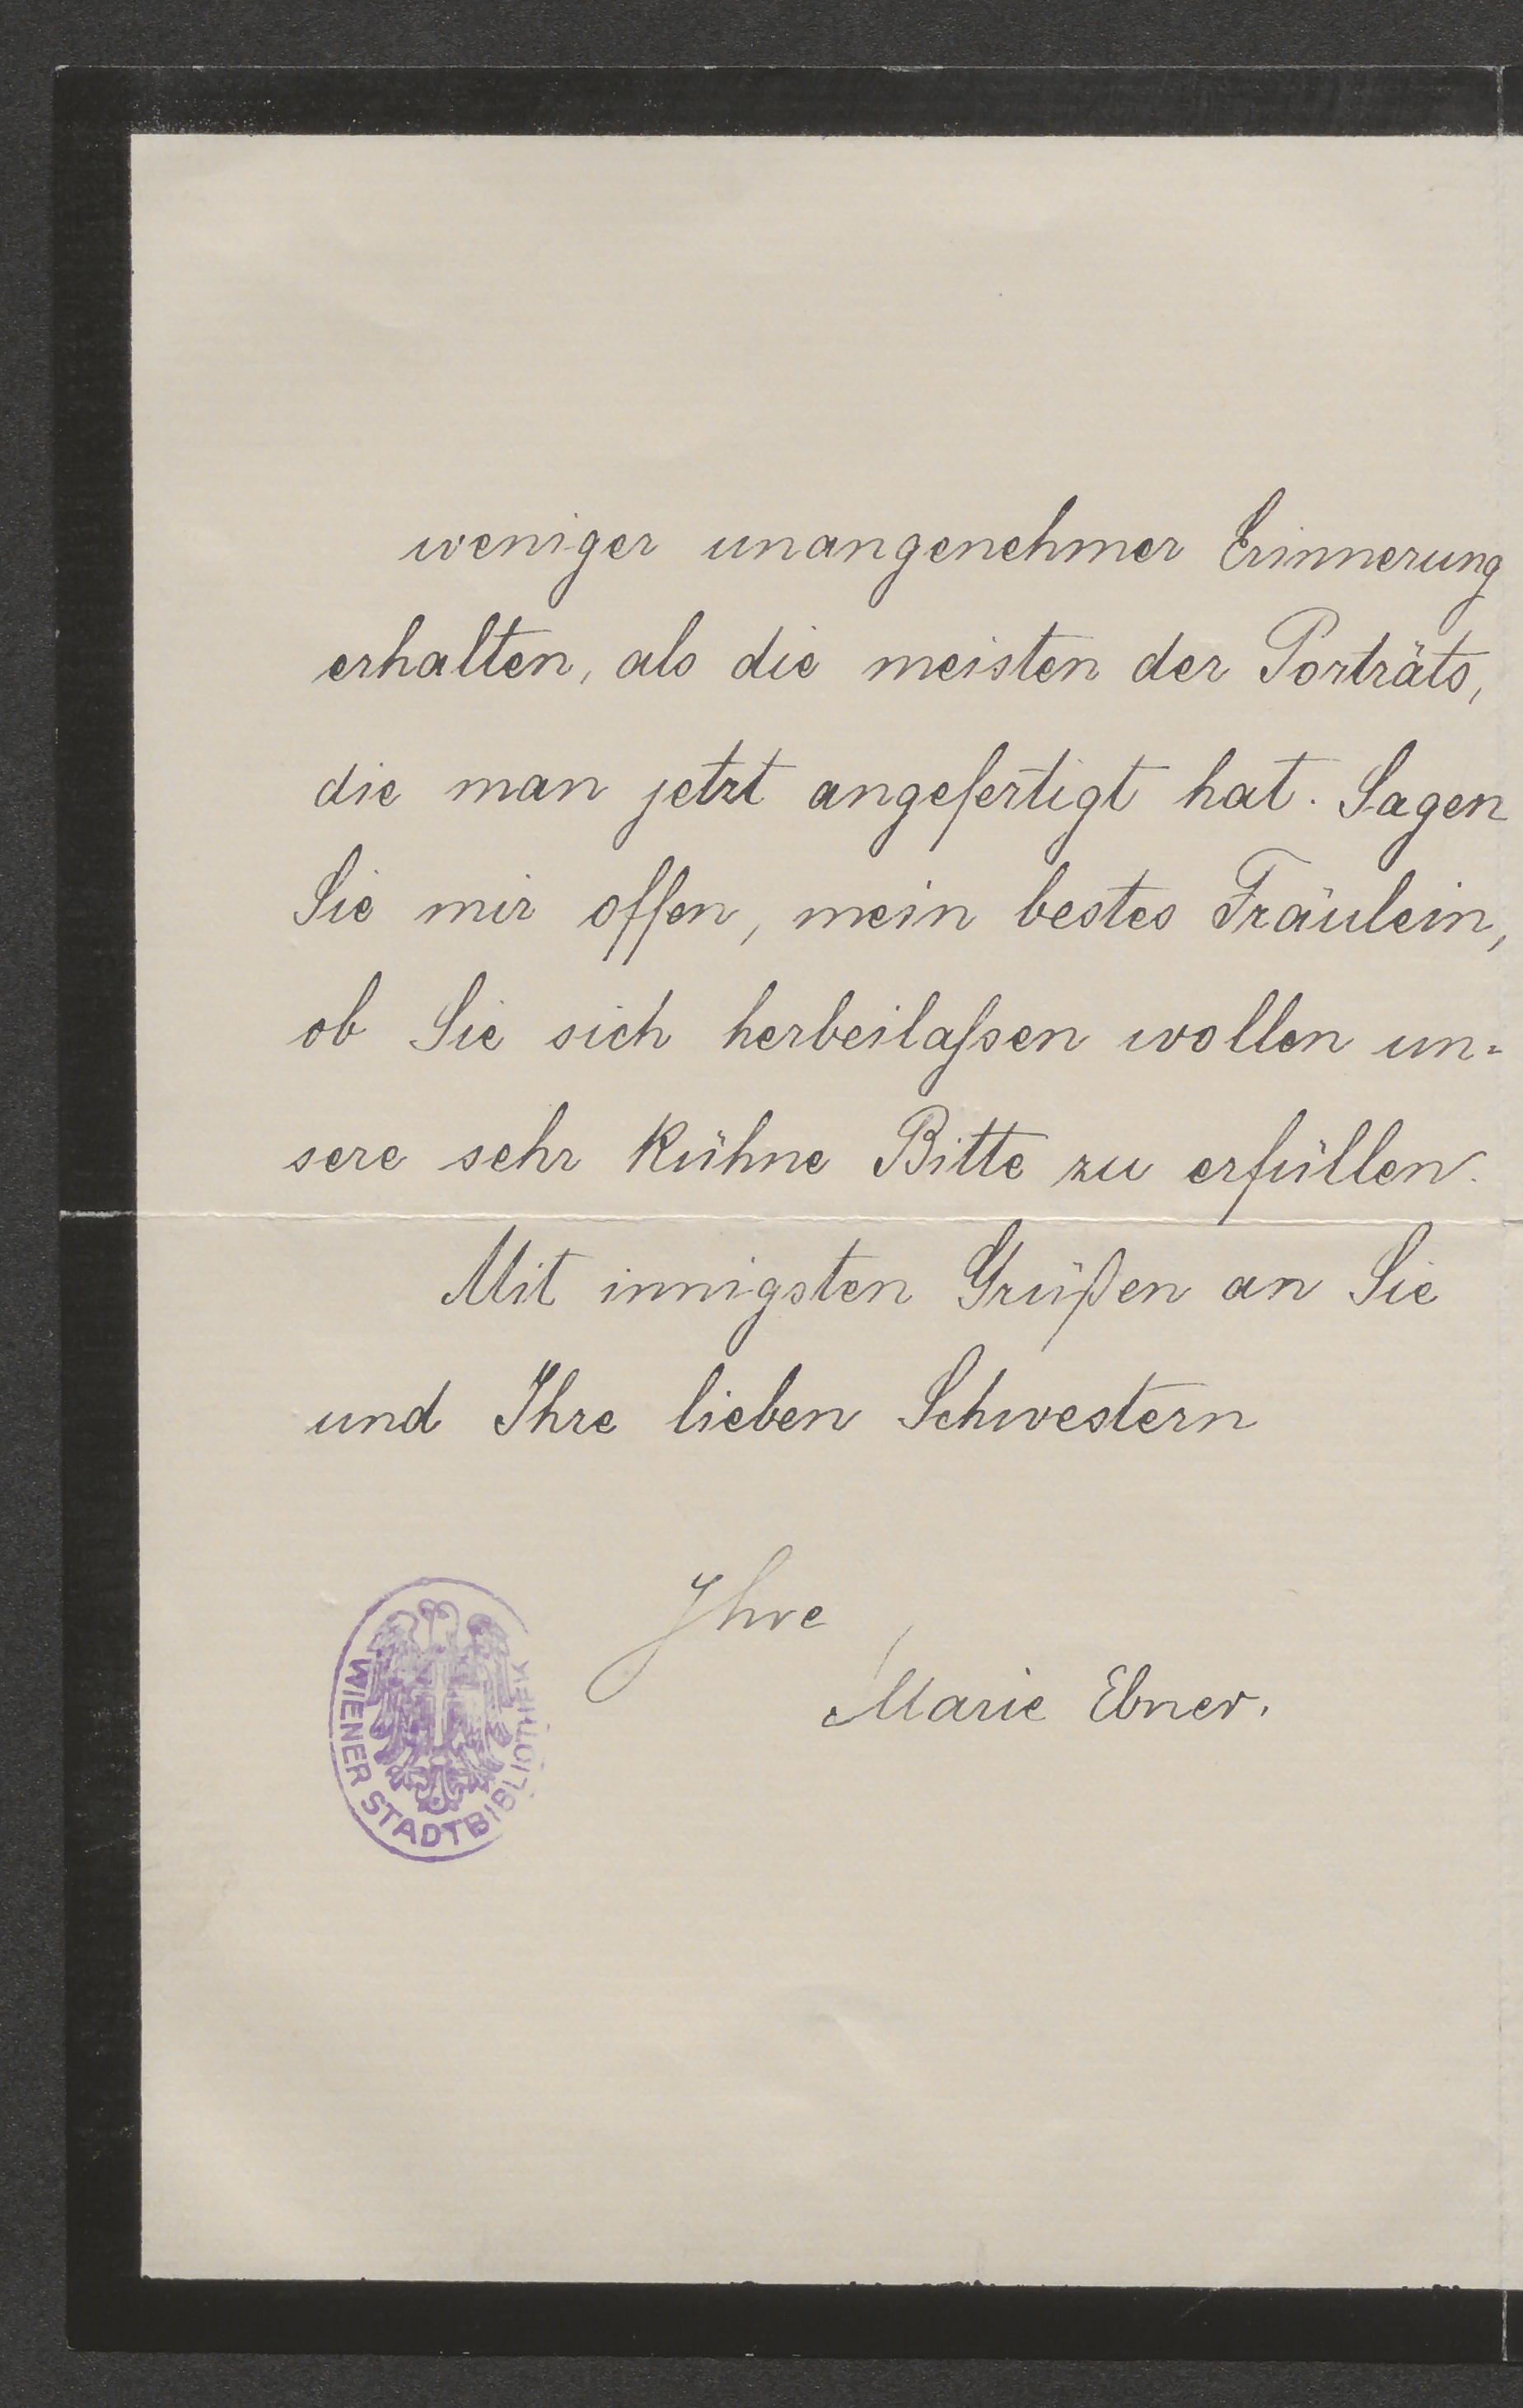 weniger unangenehmer Erinnerung
erhalten, als die meisten der Porträts,
die man jetzt angefertigt hat. Sagen
Sie mir offen, mein bestes Fräulein,
ob Sie sich herbeilaſsen wollen un=
sere sehr kühne Bitte zu erfüllen.
Mit innigsten Grüßen an Sie
und Ihre lieben Schwestern
Ihre
Marie Ebner.
WIENER STADTBIBLIOTHEK